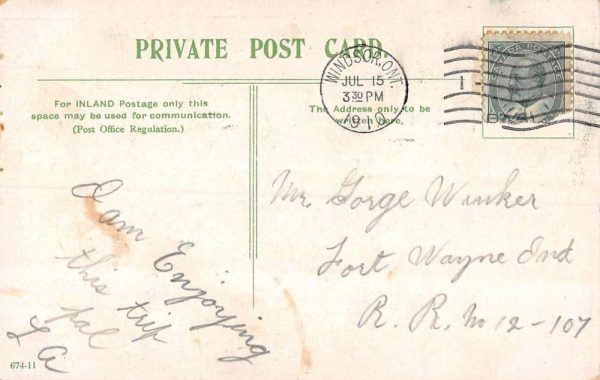 PRIVATE POST CARD.
WINDSOR, ONT.
JUL 15
3 30 PM
1910
CANADA POSTAGE
For INLAND Postage only this
space may be used for communication.
(Post Office Regulation.)
The Address only to be
written here.
I am Enjoying
this trip
pal
L A
Mr. Gorge Winker
Fort Wayne Ind
R. R. No 12-107
674-11